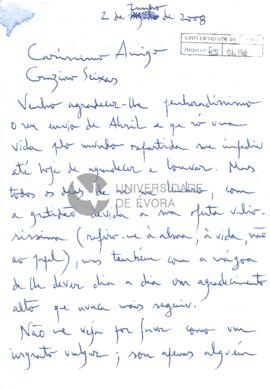 Junho
2 de de 2008
UNIVERSIDADE DE
Caríssimo Amigo
Cruzeiro Seixas
Venho agradecer-lhe penhoradíssimo
o seu envio de Abril e que só uma
vida pelo mundo repartida me impediu
até hoje de agradecer e louvar. Mas
todos os dias de com
UNIVERSIDADE
DE ÉVORA
a gratidão devida a sua oferta valio-
síssima (refiro-me à alma, à vida, não
ao papel), mas também com a mágoa
de lhe dever dia a dia um agradecimento
alto que nunca mais seguia.
Não me veja por favor como um
ingrato vulgar; sou apenas alguém